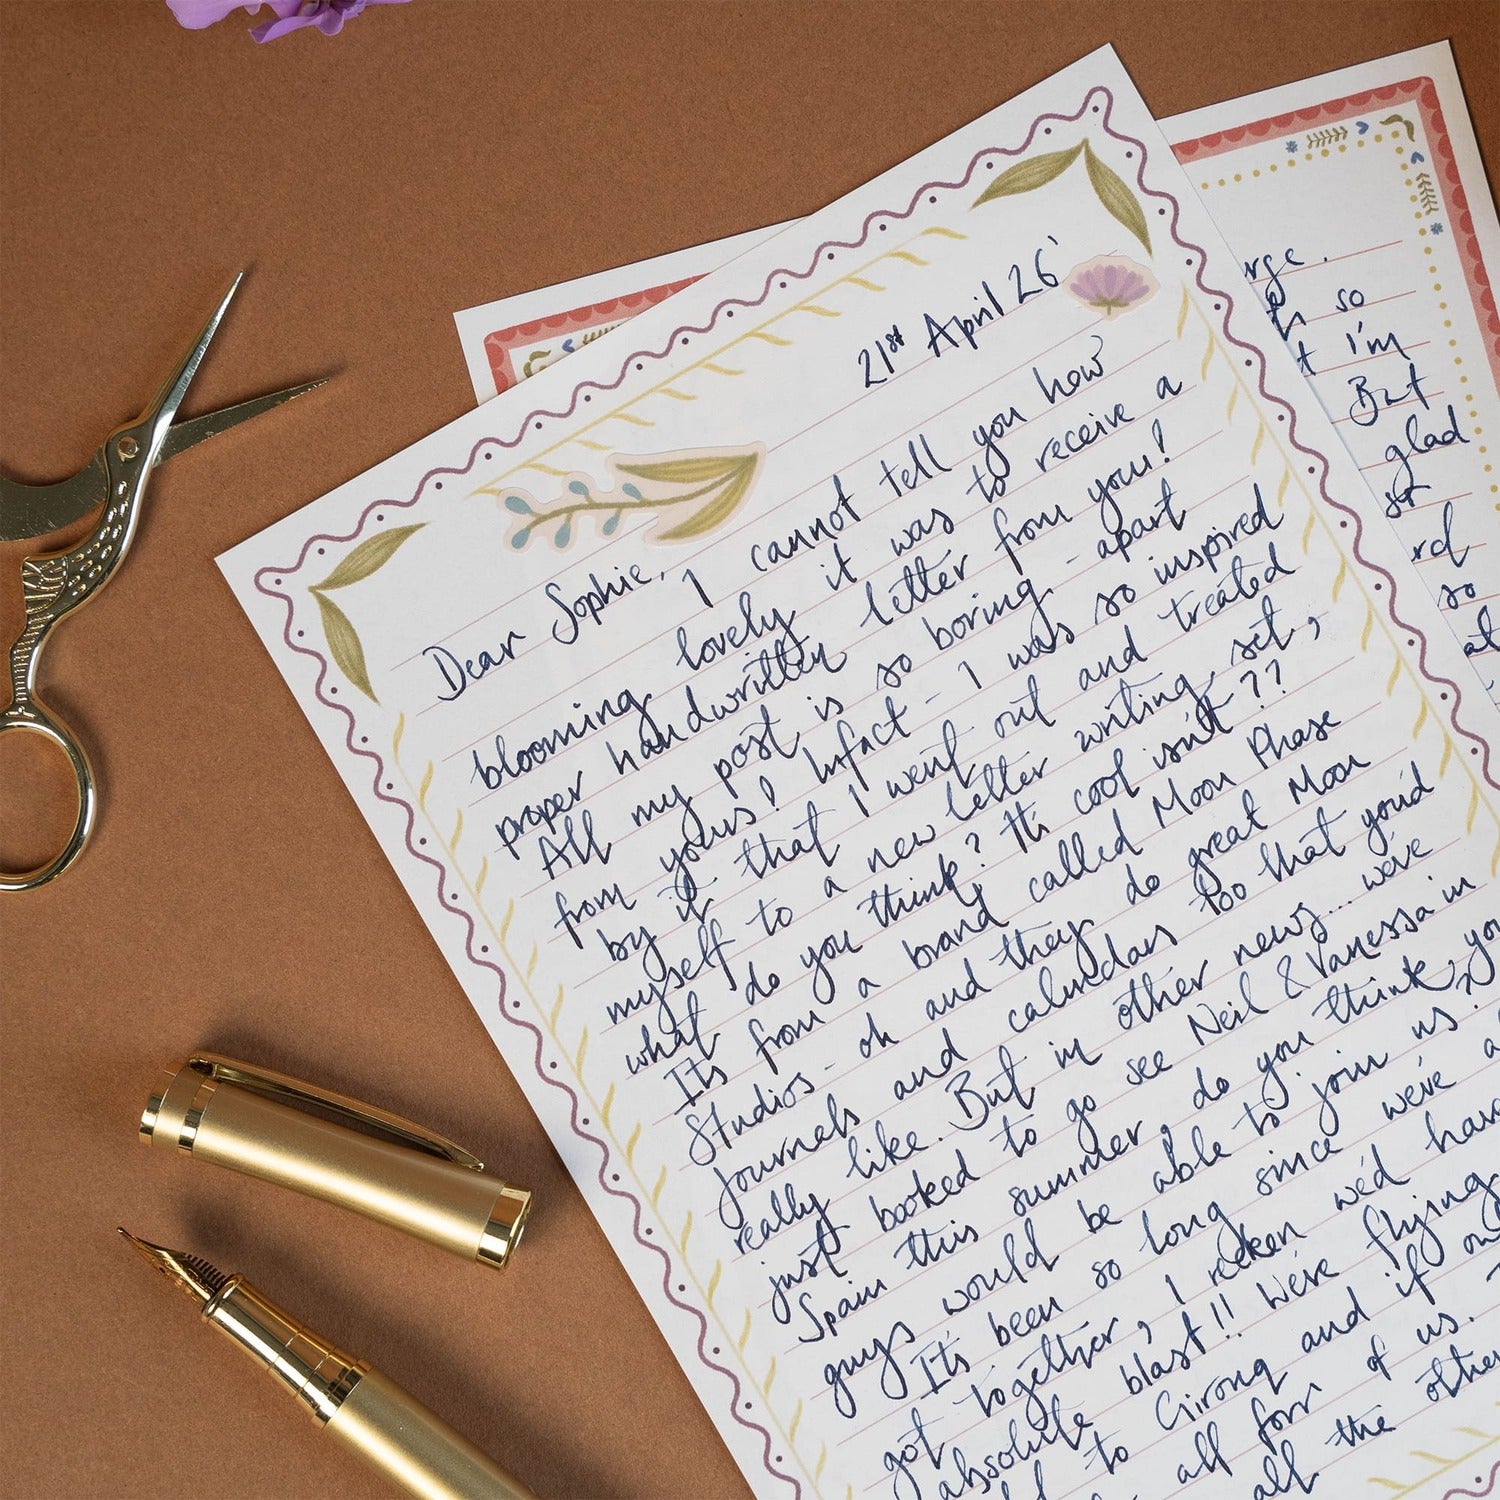 21st April 26'
Dear Sophie,
I cannot tell you how
blooming lovely it was to receive a
proper handwritten letter from you!
All my post is so boring - apart
from yours! Infact - I was so inspired
by it that I went out and treated
myself to a new letter writing set,
what do you think? It's cool isn't??
Its from a brand called Moon Phase
Studios - oh and they do great Moon
journals and calendars too that you'd
really like. But in other news... we've
just booked to go see Neil & Vanessa in
Spain this summer, do you think, you
guys would be able to join us?
It's been so long since we've a
got together, I recken we'd have
absolute blast!! We're flying
to Girona and if
all forr of us.
all the other
rge.
so
t I'm
But
glad
st
rd
so
at